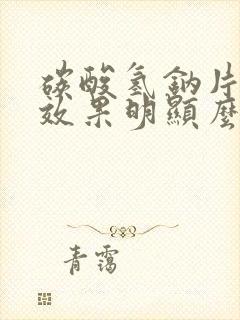 碳酸氢鈉片
效果明顯麼
青靄